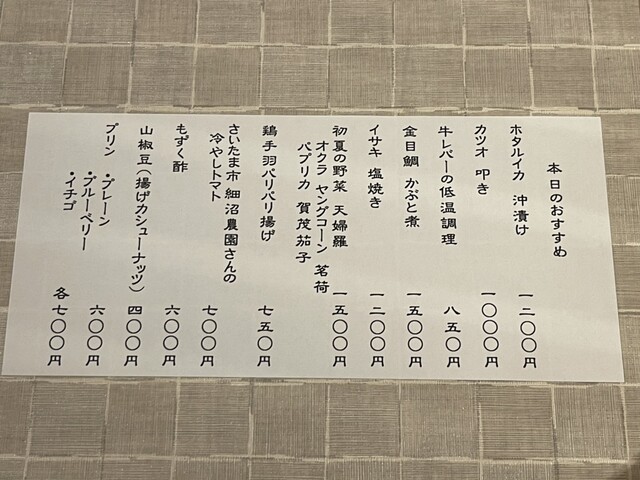 本日のおすすめ
ホタルイカ 沖漬け 一二〇〇円
カツオ 叩き 一〇〇〇円
牛レバーの低温調理 八五〇円
金目鯛 かぶと煮 一五〇〇円
イサキ 塩焼き 一二〇〇円
初夏の野菜 天婦羅 一五〇〇円
オクラ ヤングコーン 茗荷
パプリカ 賀茂茄子
鶏手羽パリパリ揚げ 七五〇円
さいたま市 細沼農園さんの
冷やしトマト 七〇〇円
もずく酢 六〇〇円
山椒豆(揚げカシューナッツ) 四〇〇円
プリン ・プレーン 六〇〇円
・ブルーベリー
・イチゴ 各七〇〇円